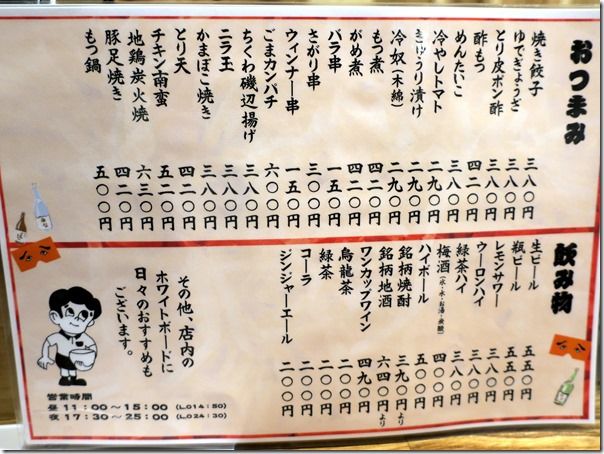 おつまみ
焼き餃子 三八〇円
ゆでぎょうざ 三八〇円
とり皮ポン酢 三八〇円
酢もつ 四二〇円
めんたいこ 三八〇円
冷やしトマト 二九〇円
きゅうり漬け 二九〇円
冷奴(木綿) 二九〇円
もつ煮 四二〇円
がめ煮 四二〇円
バラ串 一五〇円
さがり串 三〇〇円
ウィンナー串 一五〇円
ごまカンパチ 六〇〇円
ちくわ磯辺揚げ 三八〇円
ニラ玉 三八〇円
かまぼこ焼き 三八〇円
とり天 四二〇円
チキン南蛮 五二〇円
地鶏炭火焼 六三〇円
豚足焼き 四二〇円
もつ鍋 五〇〇円
飲み物
生ビール 五五〇円
瓶ビール 五五〇円
レモンサワー 三八〇円
ウーロンハイ 三八〇円
緑茶ハイ 三八〇円
梅酒(氷・水・お湯・炭酸) 四四〇円
ハイボール 四四〇円
銘柄焼酎 三九〇円より
銘柄地酒 六四〇円より
ワンカップワイン 四九〇円
烏龍茶 二〇〇円
緑茶 二〇〇円
コーラ 二〇〇円
ジンジャーエール 二〇〇円
その他、店内の
ホワイトボードに
日々のおすすめも
ございます。
営業時間
昼 11:00〜15:00 (L.O14:50)
夜 17:30〜25:00 (L.O24:30)